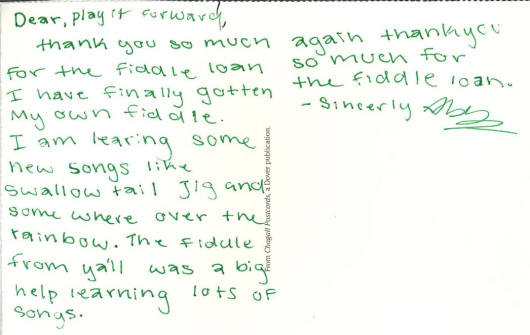 Dear, play it forward,
thank you so much
for the fiddle loan
I have finally gotten
My own fiddle.
I am learing some
new songs like
swallow tail Jig and
some where over the
rainbow. The fiddle
from ya'll was a big
help learning lots of
songs.
From Chagall Postcards, a Dover publication.
again thankyou
so much for
the fiddle loan.
- Sincerly